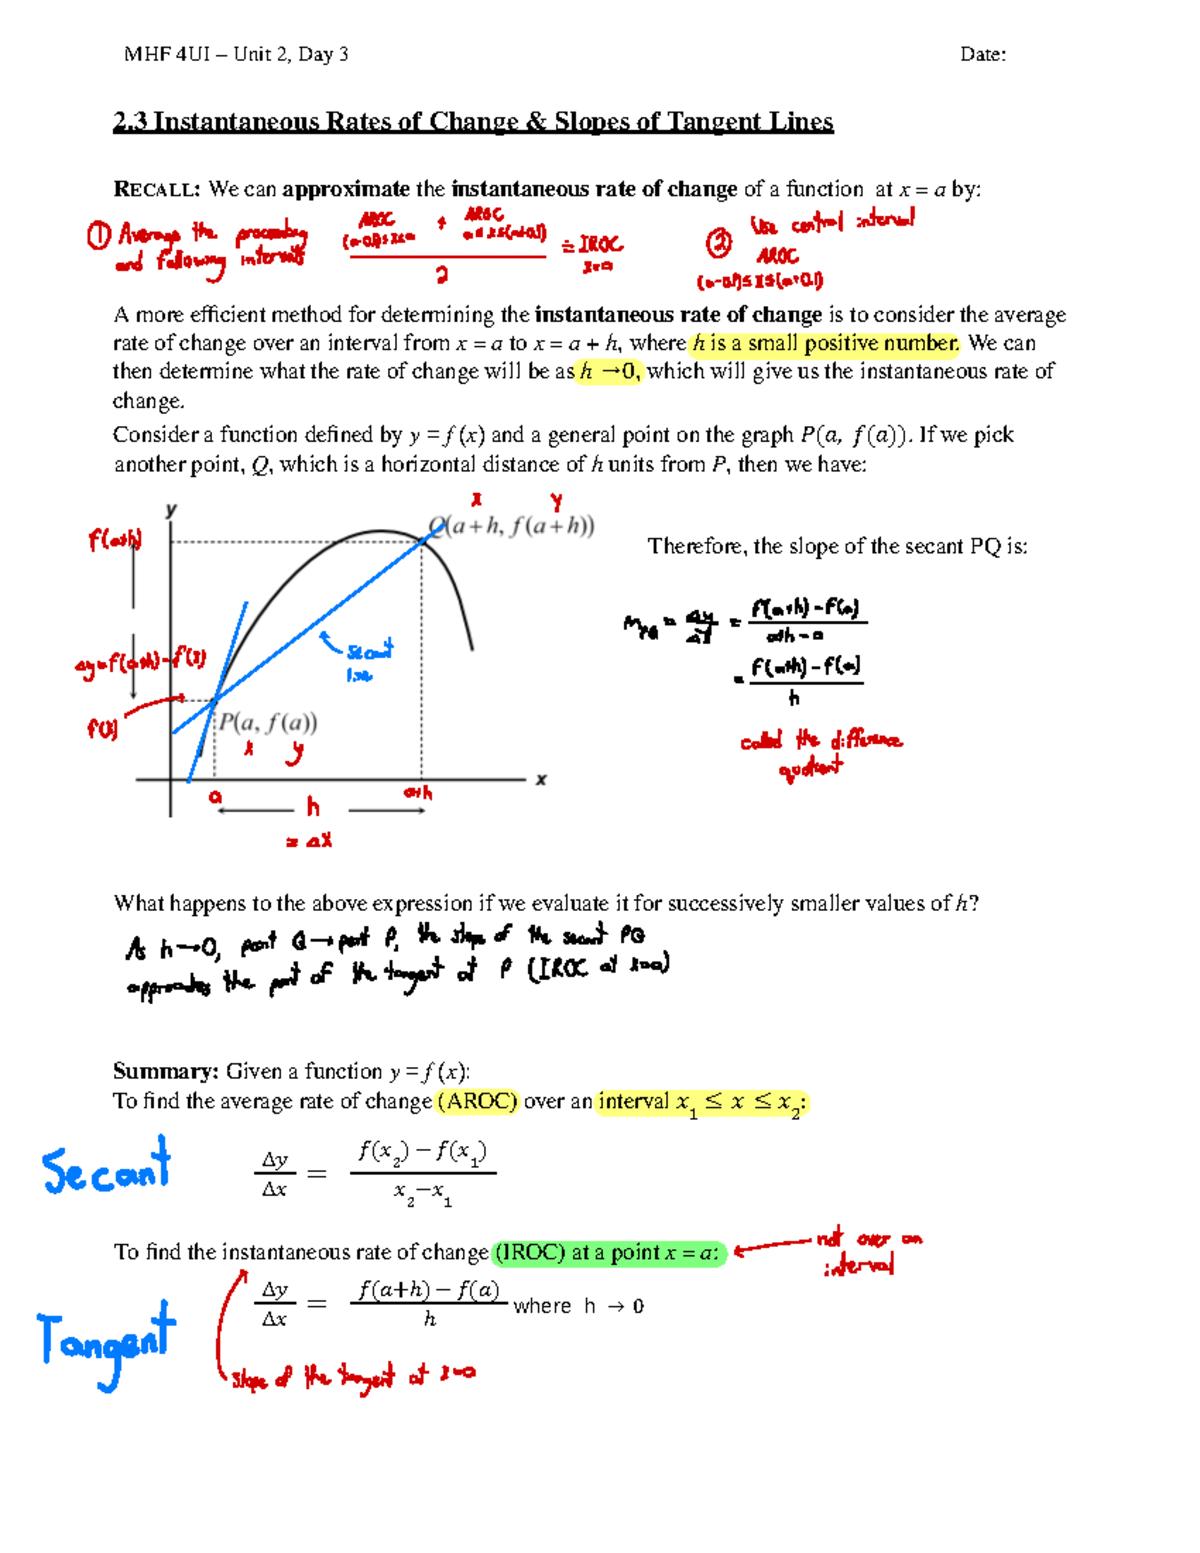 MHF 4UI – Unit 2, Day 3 Date:
2.3 Instantaneous Rates of Change & Slopes of Tangent Lines
RECALL: We can approximate the instantaneous rate of change of a function at x = a by:
① Average the preceeding
and following intervals
AROC + AROC
(a-0.1)≤x≤a a≤x≤(a+0.1)
2
≐ IROC
x=a
② Use central interval
AROC
(a-0.1)≤x≤(a+0.1)
A more efficient method for determining the instantaneous rate of change is to consider the average
rate of change over an interval from x = a to x = a + h, where h is a small positive number. We can
then determine what the rate of change will be as h →0, which will give us the instantaneous rate of
change.
Consider a function defined by y = f (x) and a general point on the graph P(a, f (a)). If we pick
another point, Q, which is a horizontal distance of h units from P, then we have:
x y
y
Q(a+h, f(a+h))
f(a+h)
Therefore, the slope of the secant PQ is:
m_PQ = Δy/Δx = f(a+h) - f(a)
a+h - a
= f(a+h) - f(a)
h
called the difference
quotient
secant
line
Δy=f(a+h)-f(a)
f(a)
P(a, f(a))
x y
x
a a+h
h
= Δx
What happens to the above expression if we evaluate it for successively smaller values of h?
As h→0, point Q→point P, the slope of the secant PQ
approaches the port of the tangent at P (IROC at x=a)
Summary: Given a function y = f (x):
To find the average rate of change (AROC) over an interval x₁ ≤ x ≤ x₂:
Secant
Δy/Δx = f(x₂) − f(x₁)
x₂−x₁
To find the instantaneous rate of change (IROC) at a point x = a:
not over an
interval
Tangent
Δy/Δx = f(a+h) − f(a)
h
where h → 0
slope of the tangent at x=a